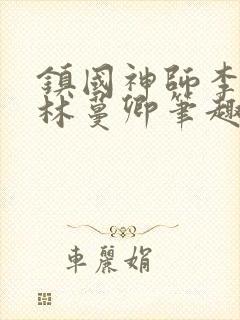 鎮國神師李
林蔓卿筆趣
車麗娟